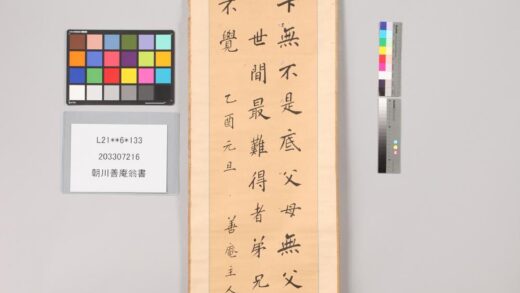 L21**6*133
203307216
朝川善庵翁書
下無不是底父母無父
世間最難得者弟兄
不覺
乙酉元旦 善庵主人